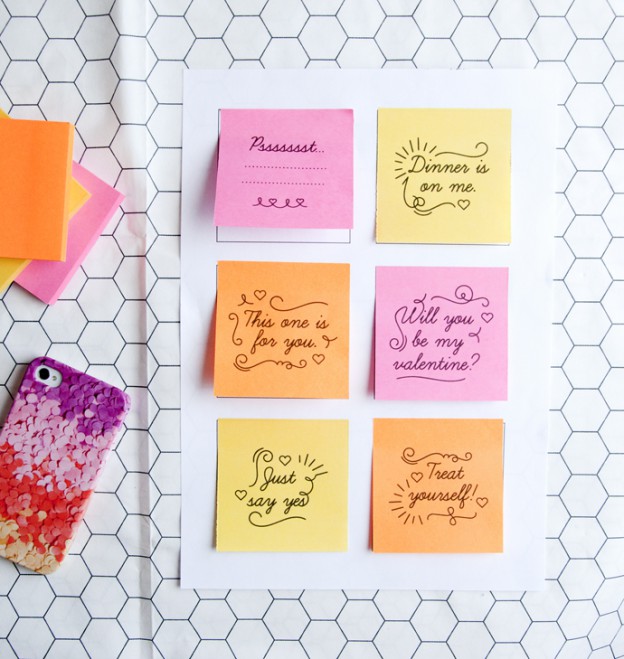 Psssssst...
Dinner is
on me.
This one is
for you.
Will you
be my
valentine?
Just
say yes
Treat
yourself!